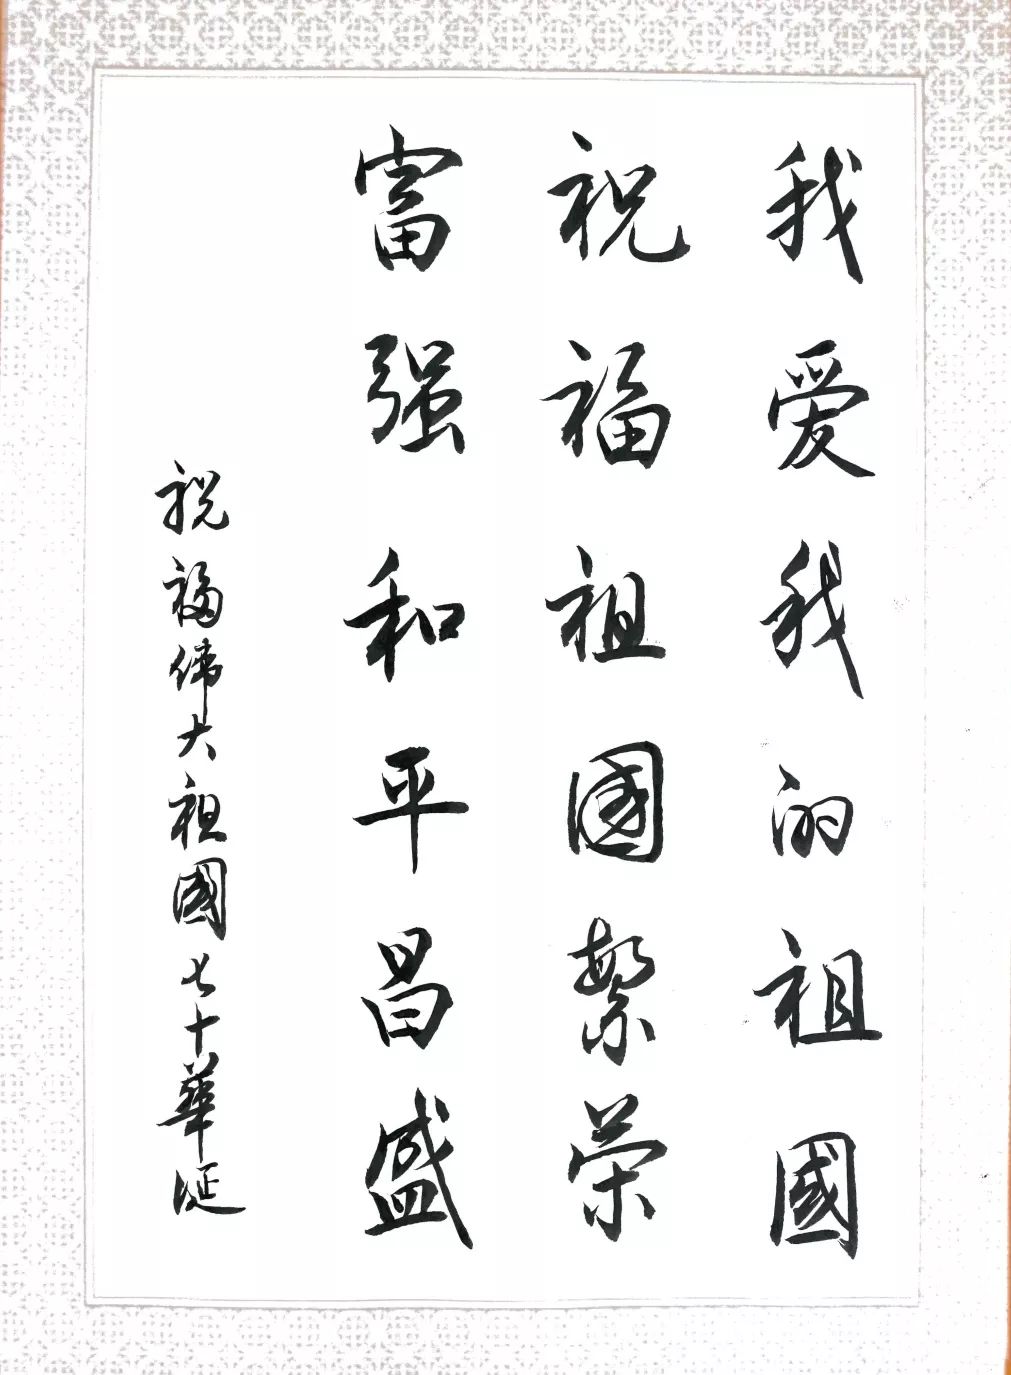 我爱我的祖國
祝福祖國繁荣
富强和平昌盛
祝福偉大祖國七十華诞